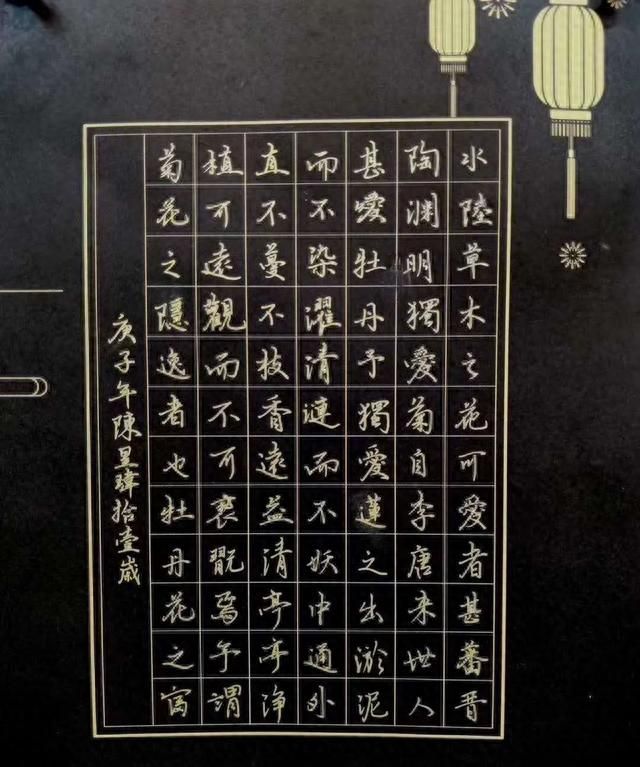 水陸草木之花可愛者甚蕃晋
陶渊明獨愛菊自李唐来世人
甚愛牡丹予獨愛蓮之出淤泥
而不染濯清漣而不妖中通外
直不蔓不枝香遠益清亭亭淨
植可遠觀而不可褻翫焉予謂
菊花之隱逸者也牡丹花之富
庚子年陳昱瑋拾壹歲